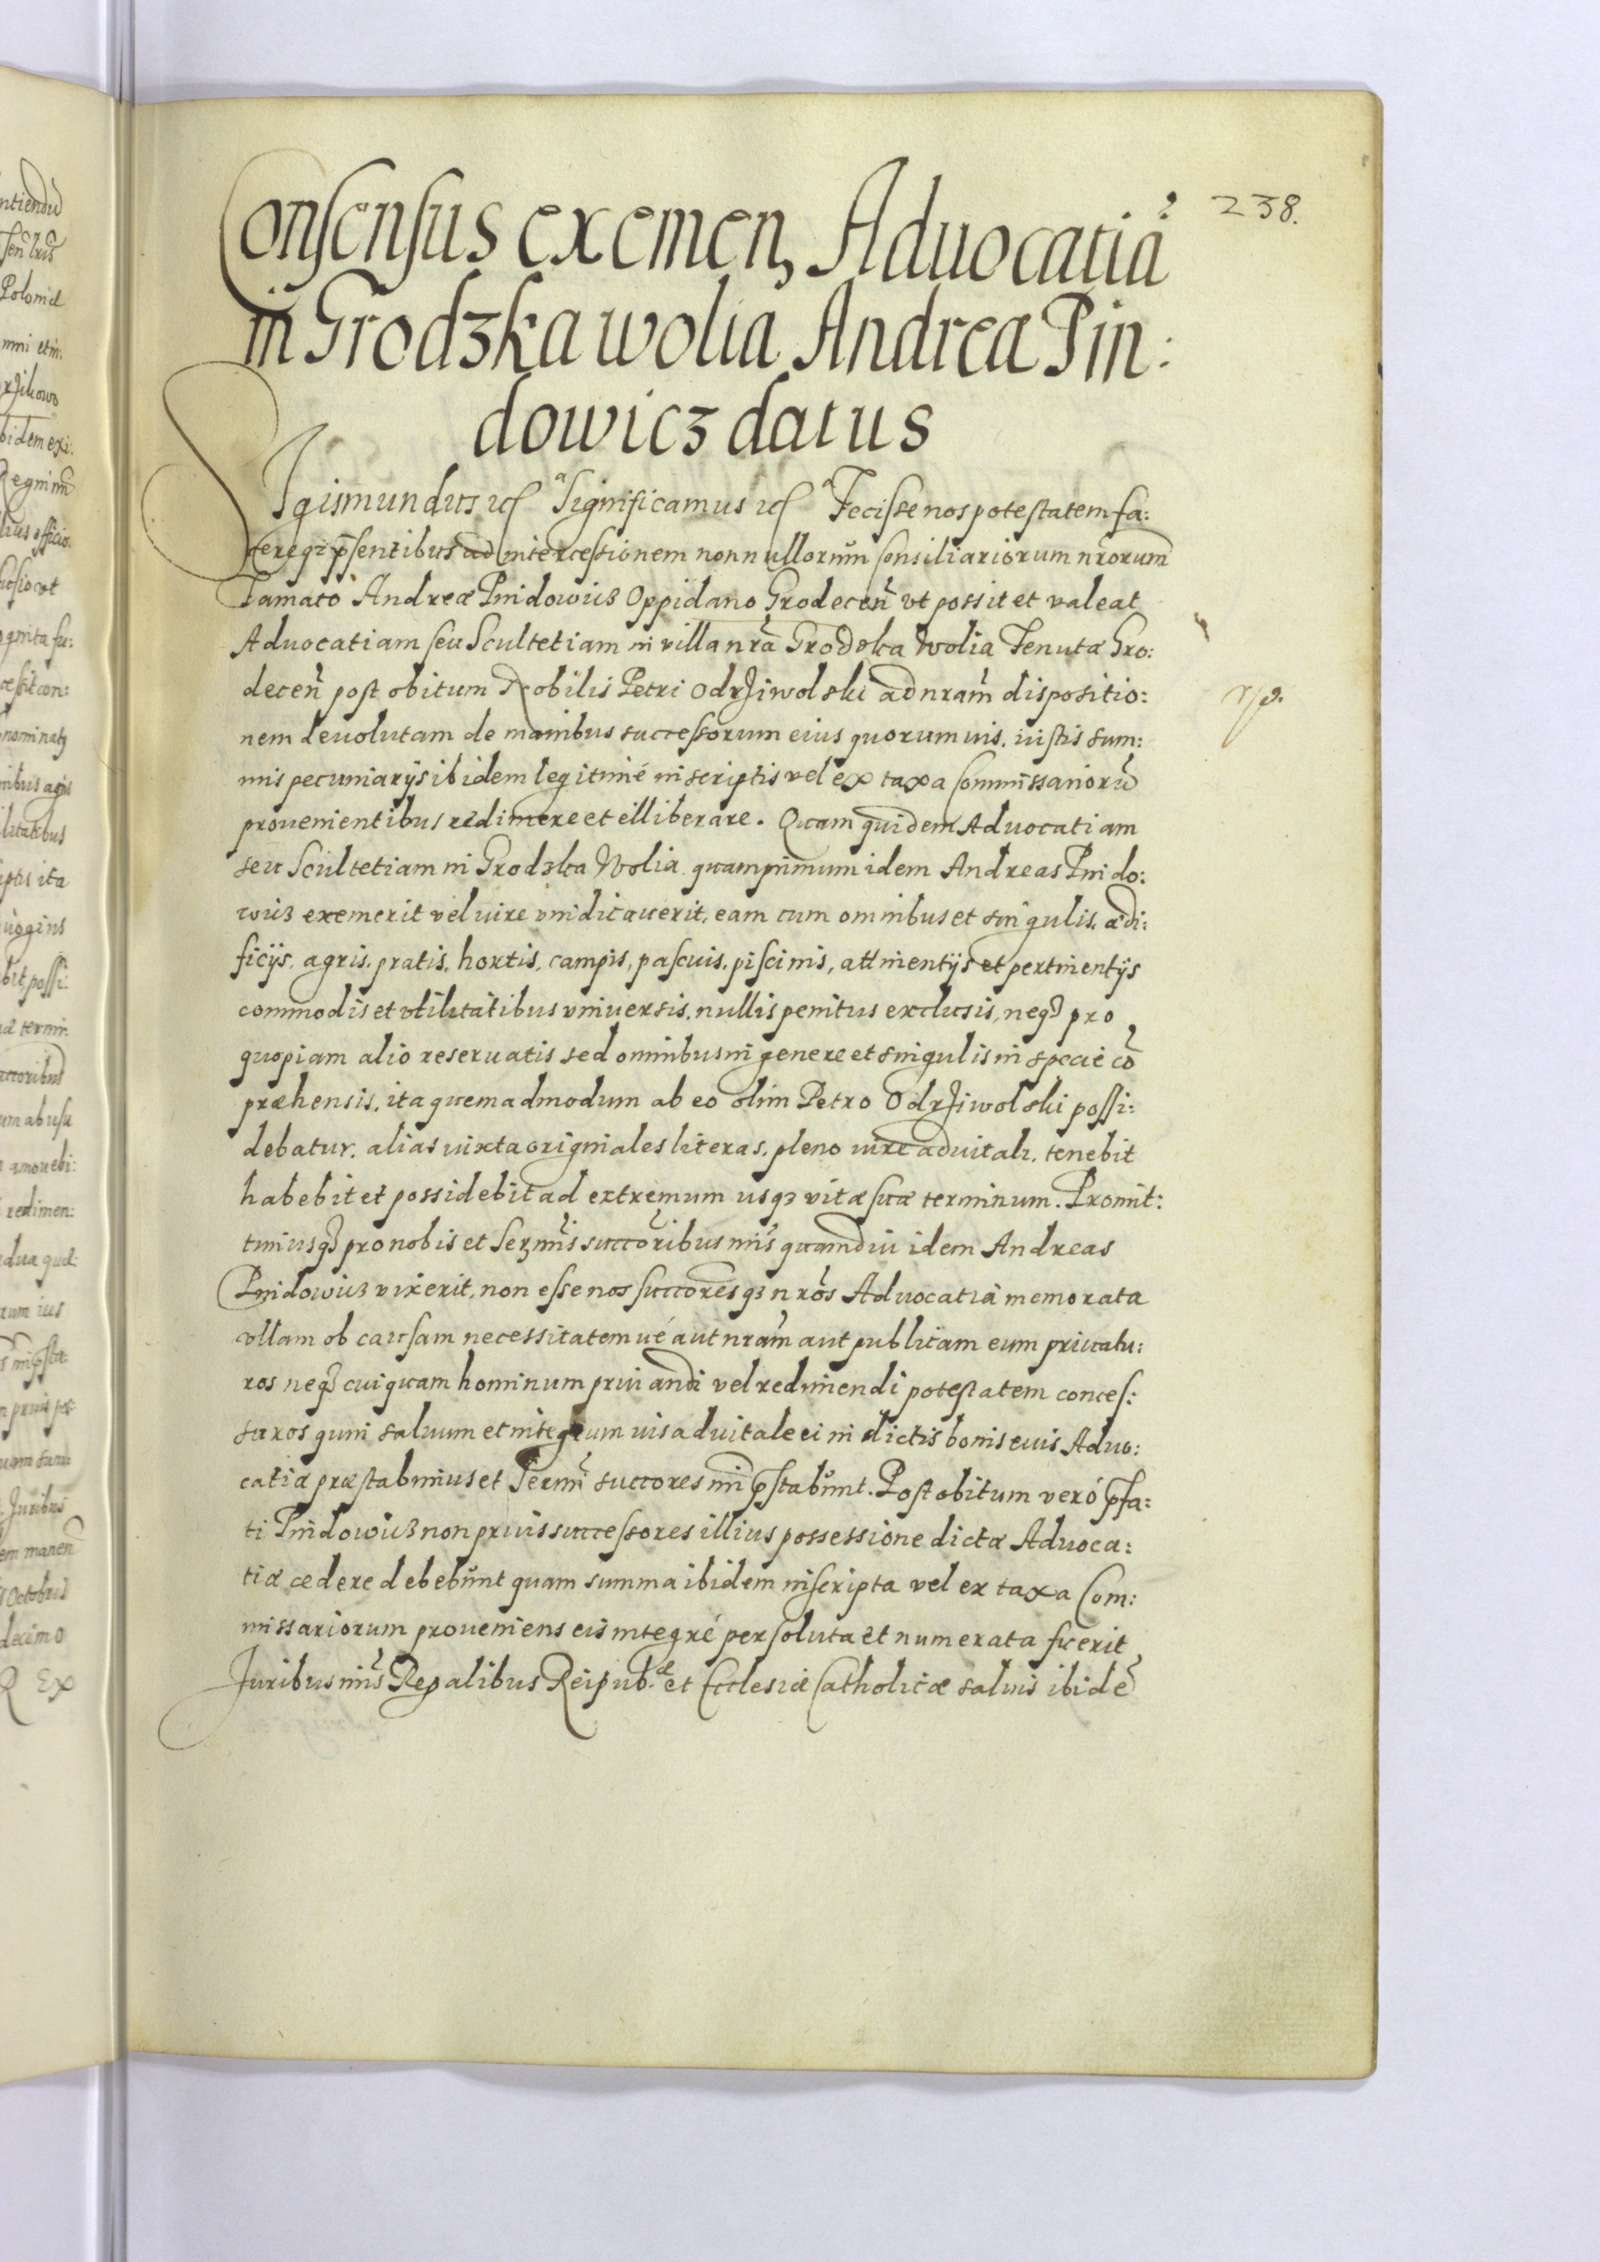 238.
Consensus eximen, Aduocatiã
in Grodzka wolia Andreæ Pin:
dowicz datus
Sigismundus etc Significamus etc Fecisse nos potestatem fa:
cereq3 pñsentibus ad intercessionem nonnullorum Consiliariorum nrorum
Famato Andreæ Pindowicz Oppidano Grodeceñ vt possit et valeat
Aduocatiam seu Scultetiam in villa nrã Grodzka Wolia Tenutæ Gro:
deceñ post obitum Nobilis Petri Odrziwolski ad nram̃ dispositio:
nem deuolutam de manibus successorum eius quorumuis, iustis sum:
mis pecuniarijs ibidem legitimé inscriptis vel ex taxa Commissariorũ
prouenientibus redimere et elliberare. Quam quidem Aduocatiam
seu Scultetiam in Grodzka Wolia quamprimum idem Andreas Pindo:
wicz exemerit vel iure vindicauerit, eam cum omnibus et singulis, ædi:
ficijs, agris, pratis, hortis, campis, pascuis, piscinis, attinentijs et pertinentijs
commodis et vtilitatibus vniuersis, nullis penitus exclusis, neq3 pro
quopiam alio reseruatis sed omnibus in genere et singulis in specie cõ
præhensis, ita quemadmodum ab eo olim Petro Odrziwolski possi:
debatur, alias iuxta originales literas, pleno iure aduitali, tenebit
habebit et possidebit ad extremum usq3 vitæ suæ terminum. Promit:
timusq3 pro nobis et Serm̃is succoribus nr̃is quamdiu idem Andreas
Pindowicz vixerit, non esse nos succoresq3 nros Aduocatiã memorata
vllam ob causam necessitatemué aut nram̃ aut publicam eum priuatu:
ros neq3 cuiquam hominum priuandi vel redimendi potestatem conces:
suros quin saluum et integrum ius aduitale ei in dictis bonis euis Aduo:
catiæ præstabimus et Serm̃i succores nr̃i p̃stabunt. Post obitum veró p̃fa:
ti Pindowicz non prius successores illius possessione dictæ Aduoca:
tiæ cedere debebunt quam summa ibidem inscripta vel ex taxa Com:
missariorum proueniens eis integré persoluta et numerata fuerit
Juribus nr̃is Regalibus Reipub.æ et Ecclesiæ Catholicæ saluis ibidẽ